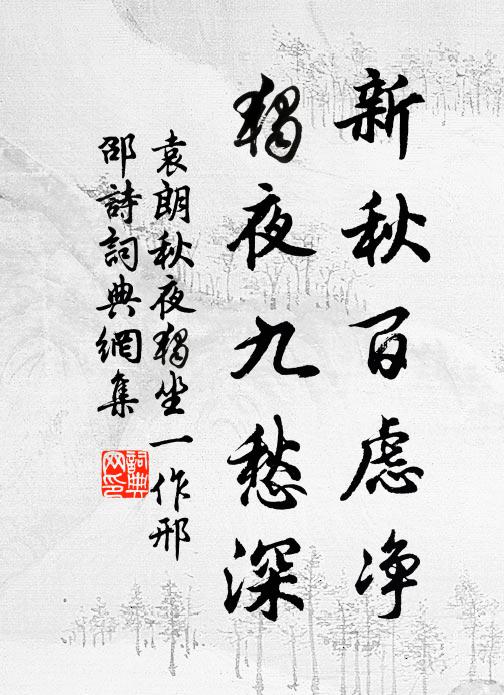 新秋百慮净
獨夜九愁深
袁朗秋夜獨坐一作邢
邵詩詞典網集
詞典
网印